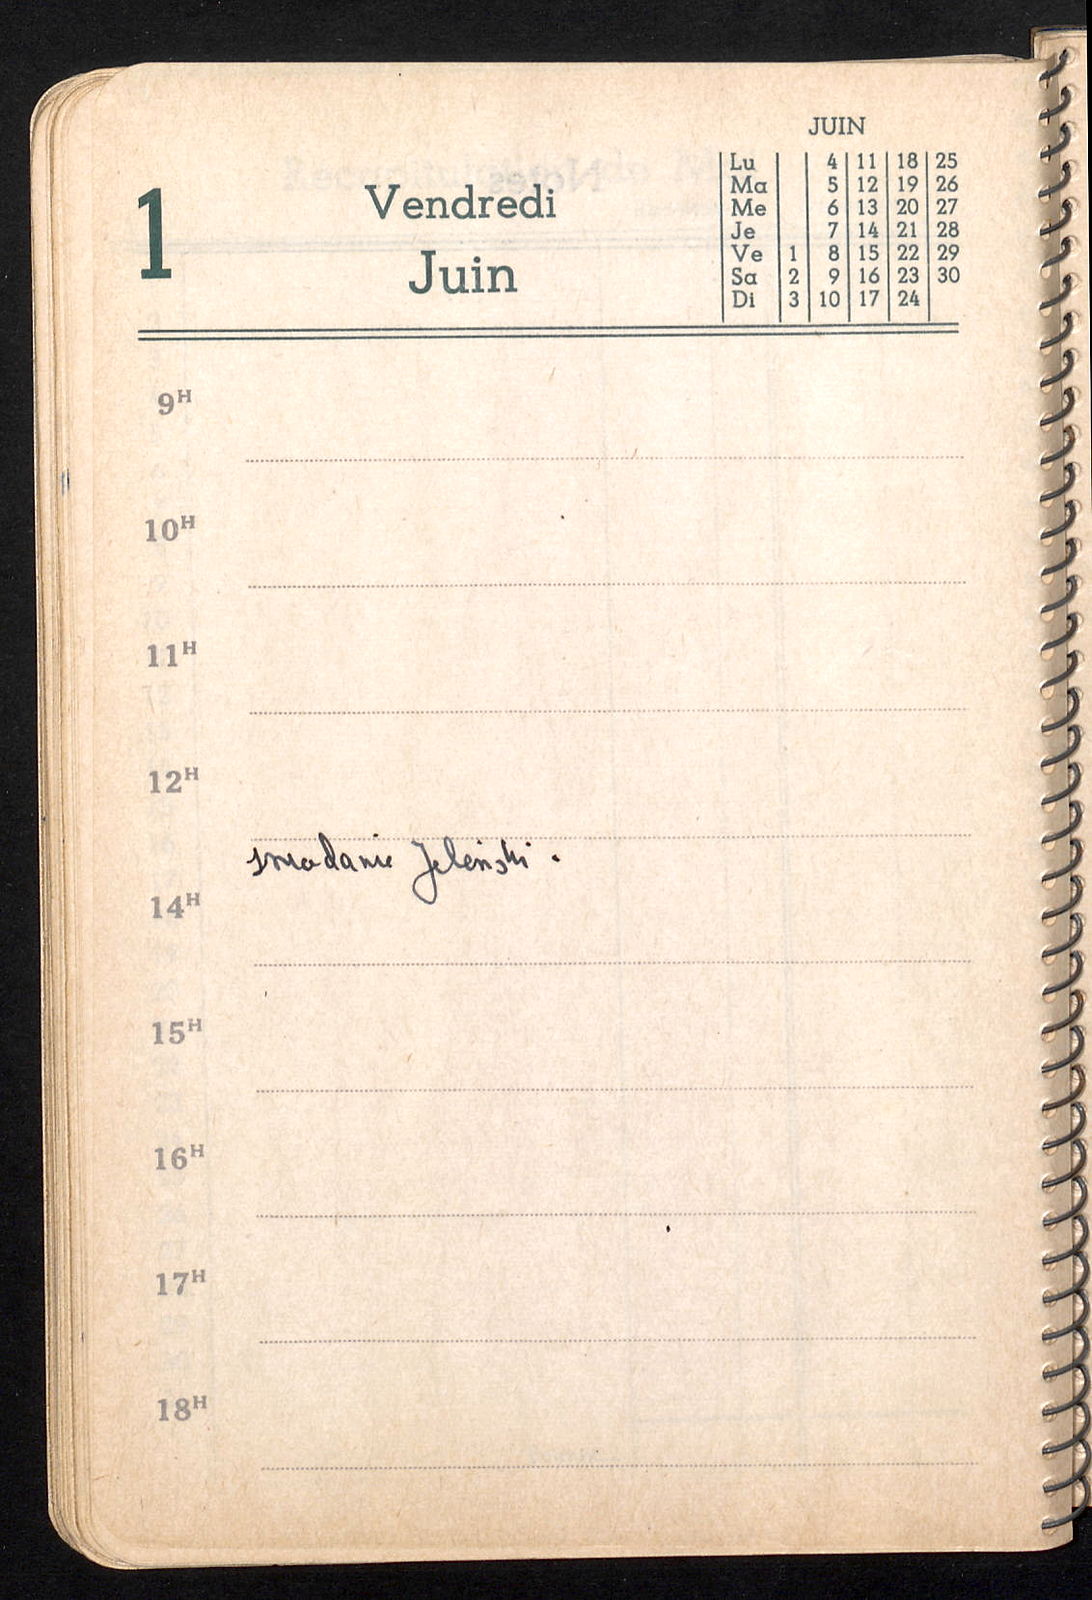 1
Vendredi
Juin
JUIN
Lu 4 11 18 25
Ma 5 12 19 26
Me 6 13 20 27
Je 7 14 21 28
Ve 1 8 15 22 29
Sa 2 9 16 23 30
Di 3 10 17 24
9H
10H
11H
12H
madame Jelenski.
14H
15H
16H
17H
18H